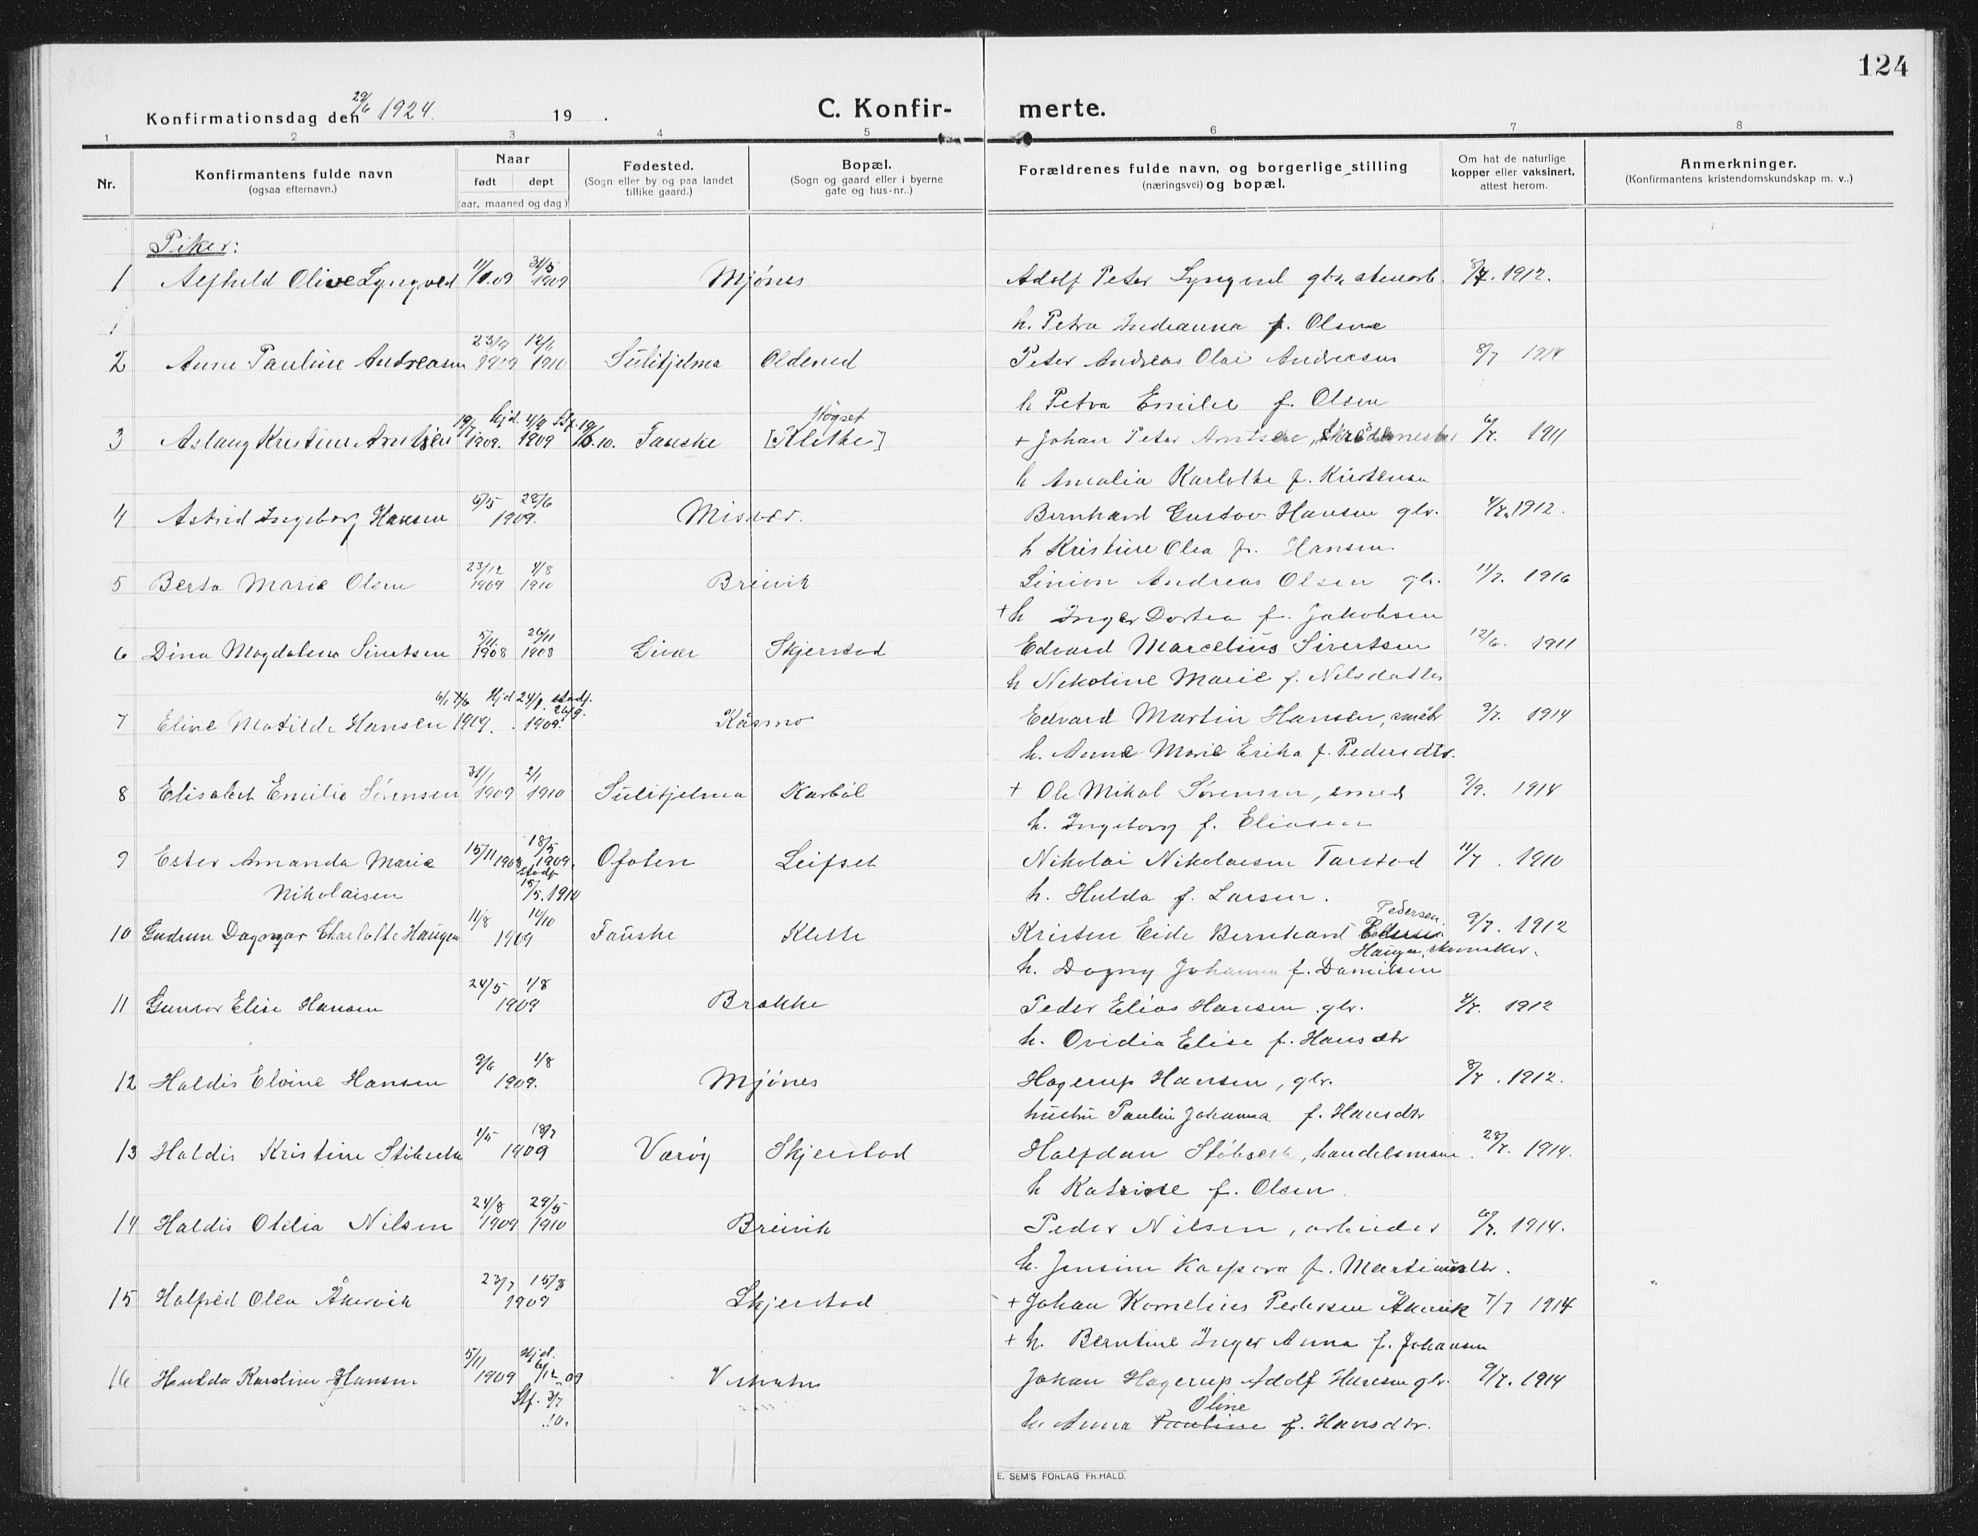 124
Konfirmationsdag den 29/6 1924. 19 .
C. Konfir- merte.
1 2 3 4 5 6 7 8
Nr.
Konfirmantens fulde navn
(ogsaa efternavn.)
Naar
født døpt
(aar, maaned og dag)
Fødested.
(Sogn eller by og paa landet
tillike gaard.)
Bopæl.
(Sogn og gaard eller i byerne
gate og hus-nr..)
Forældrenes fulde navn, og borgerlige stilling
(næringsvei) og bopæl.
Om hat de naturlige
kopper eller vaksinert,
attest herom.
Anmerkninger.
(Konfirmantens kristendomskundskap m. v..)
Piker:
1 Alfhild Olive Lyngved 31/5 1909 Mjönes Adolf Peter Lyngved gbr. stenarb. 8/7. 1912.
h. Petra Indianna f. Olsen
2 Anne Pauline Andreasen 23/9 1909 12/6 1910 Sulitjelma Oldereid Peter Andreas Olai Andreasen 8/7 1914
h Petra Emilie f. Olsen
3 Aslaug Kristine Arntsen 19/7 1909. Hjd. 4/9 1909 Stf. 19/6.10. Fauske Høgset [Klette] + Johan Peter Arntsen, 6/7. 1911
h Amalia Karlotte f. Kristensen
4 Astrid Ingeborg Hansen 6/5 22/6 1909. Misvær. Bernhard Gustav Hansen gbr. 4/7. 1912.
h Kristine Olea f. Hansen
5 Berta Marie Olsen 23/12 1909 4/8 1910 Breivik Simon Andreas Olsen gbr. 11/7. 1916
+ h Inger Dortea f. Jakobsen
6 Dina Magdalena Sivertsen 5/11 1908 26/11 1908 Givær Skjerstad Edvard Marcelius Sivertsen 12/6. 1911
h Nikoline Marie f. Nilsdatter
7 Eline Matilde Hansen 1909. Hjd 24/9. 1909. stadf. 26/9. Kåsmo Edvard Martin Hansen, småbr 9/7. 1914
h. Anne Marie Erika f. Pedersdtr.
8 Elisabet Emilie Sörensen 31/1 1909 2/1 1910 Sulitjelma Karböl + Ole Mikal Sörensen, smed 9/9. 1914
h. Ingeborg f. Eliasen
9 Ester Amanda Marie 15/11 1908 18/5 1909. Ofoten Leifset Nikolai Nikolaisen Tarstad 11/7. 1910
Nikolaisen stadf 15/5. 1910 h. Hulda f. Larsen.
10 Gudrun Dagmar Charlotte Haugen 11/8 10/10 1909 Fauske Klette Kristen Eide Bernhard Pedersen 9/7. 1912
Haugen, skomaker.
h. Dagny Johanna f. Danielsen
11 Gunvor Elise Hansen 24/5 1/8 1909 Brekke Peder Elias Hansen gbr. 4/7. 1912
h. Ovidia Elise f. Hansdtr
12 Haldis Elvine Hansen 9/6 1/8 1909. Mjönes Hagerup Hansen, gbr. 8/7. 1912.
hustru Pauline Johanna f. Hansdtr
13 Haldis Kristine Stöbakk 1/5 18/7 1909 Væröy Skjerstad Halfdan Stöbakk, handelsmann. 28/7. 1914.
h Katrine f. Olsen.
14 Haldis Otelia Nilsen 24/8 1909 29/5 1910 Breivik Peder Nilsen, arbeider 6/7. 1914.
h. Jensine Kaspara f. Martinusdtr.
15 Halfrid Olea Åkervik 23/7 15/8 1909 Skjerstad + Johan Kornelius Pedersen Åkervik 7/7 1914
+ h. Berntine Inger Anna f. Johansen
16 Hulda Karoline Hansen 5/11 1909 Hjd. 6/12 09 Johan Hagerup Adolf Hansen gbr. 9/7. 1914
Stf. 3/7 .10. Oline
h. Anna Pauline f. Hansdtr.
E. SEM'S FORLAG FR.HALD.